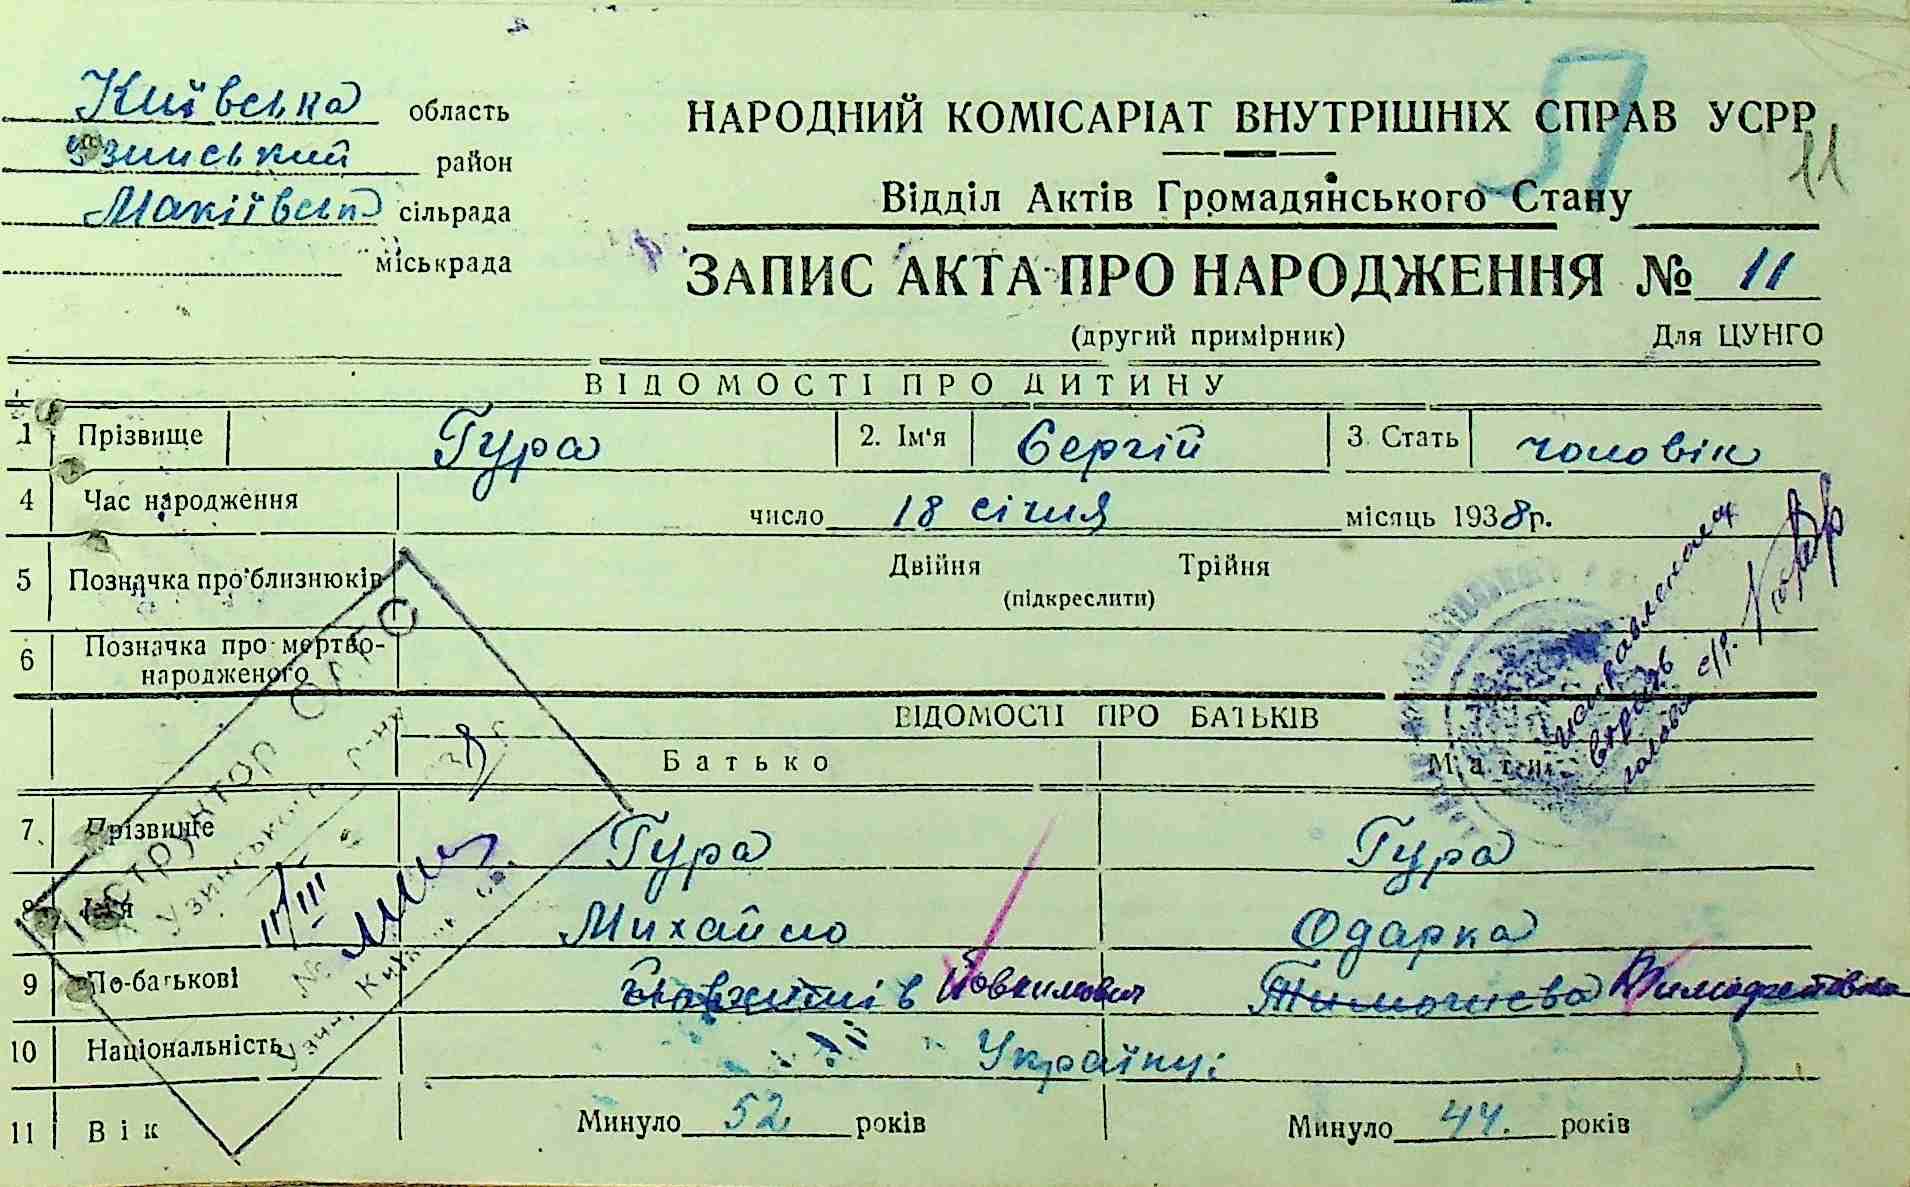 Київська область
Узинський район
Макіївська сільрада
міськрада
НАРОДНИЙ КОМІСАРІАТ ВНУТРІШНІХ СПРАВ УСРР
11
Відділ Актів Громадянського Стану
ЗАПИС АКТА ПРО НАРОДЖЕННЯ № 11
(другий примірник) Для ЦУНГО
ВІДОМОСТІ ПРО ДИТИНУ
1 Прізвище Гура 2. Ім'я Сергій 3. Стать чоловік
4 Час народження число 18 січня місяць 1938р.
5 Позначка про близнюків Двійня Трійня
(підкреслити)
6 Позначка про мертво-
народженого
ВІДОМОСТІ ПРО БАТЬКІВ
Батько Мати
7 Прізвище Гура Гура
8 Ім'я Михайло Одарка
9 По-батькові Йовхимович Тимофеївна
10 Національність Українці
11 Вік Минуло 52 років Минуло 44. років
Інструктор ОАГС
Узинського р-ну
11/III 38 р.
№